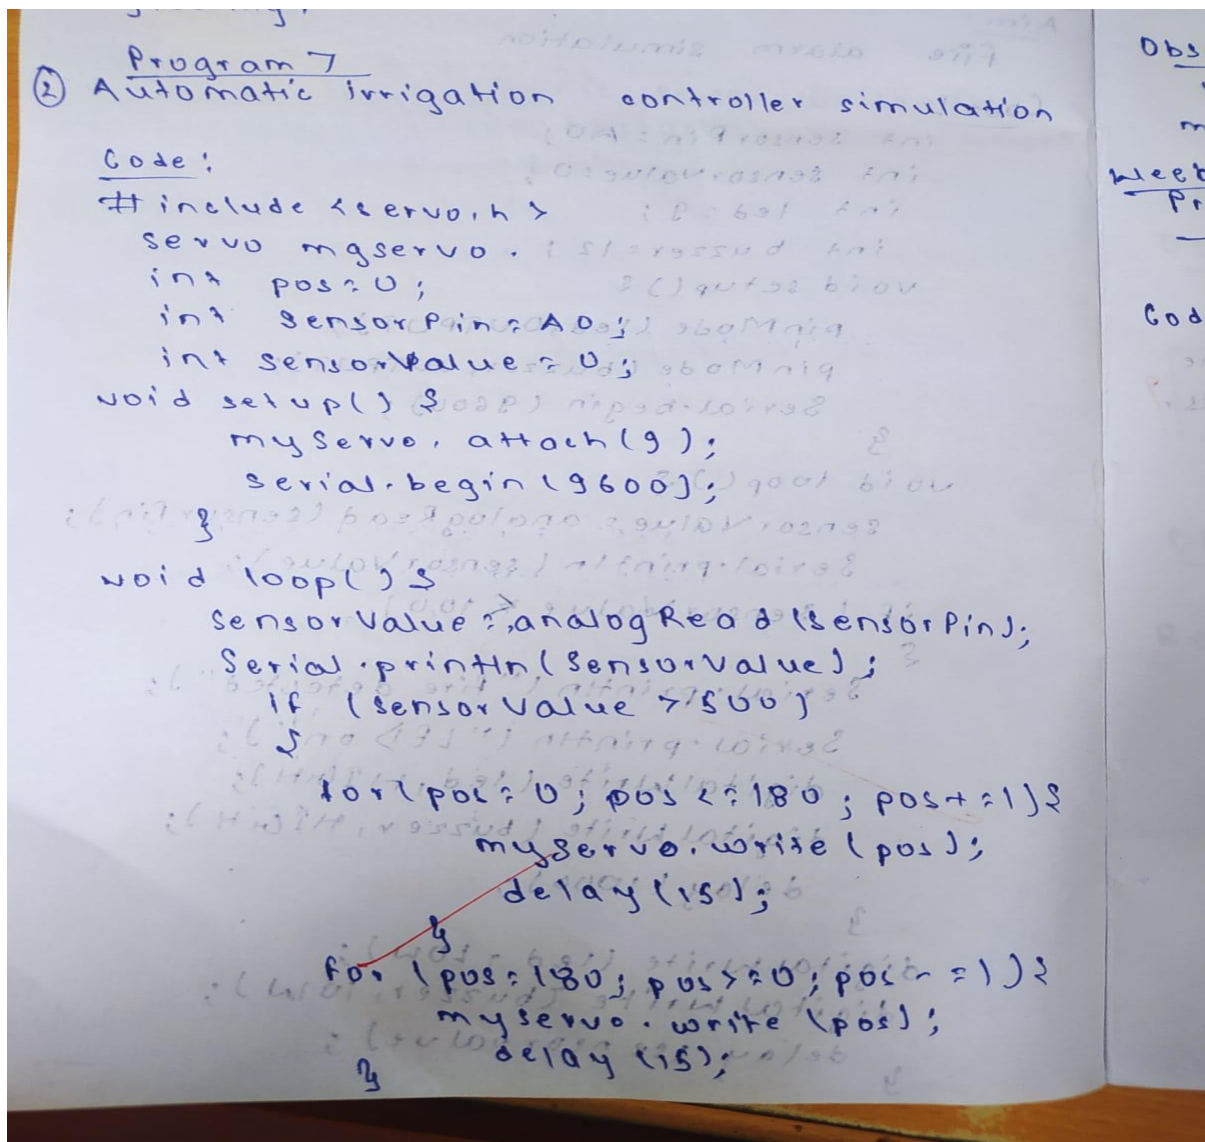 Program 7
② Automatic irrigation controller simulation
Code:
#include <servo.h>
servo mgservo.
int pos=0;
int sensorPin=A0;
int sensorValue=0;
void setup() {
myServo.attach(9);
serial.begin(9600);
}
void loop() {
sensorValue=analogRead(sensorPin);
Serial.println(sensorValue);
if (sensorValue >500)
{
for(pos=0; pos<=180; pos+=1){
myservo.write(pos);
delay(15);
}
for (pos=180; pos>=0; pos-=1){
myservo.write(pos);
delay(15);
}
Obs
m
Week
Pr
Cod